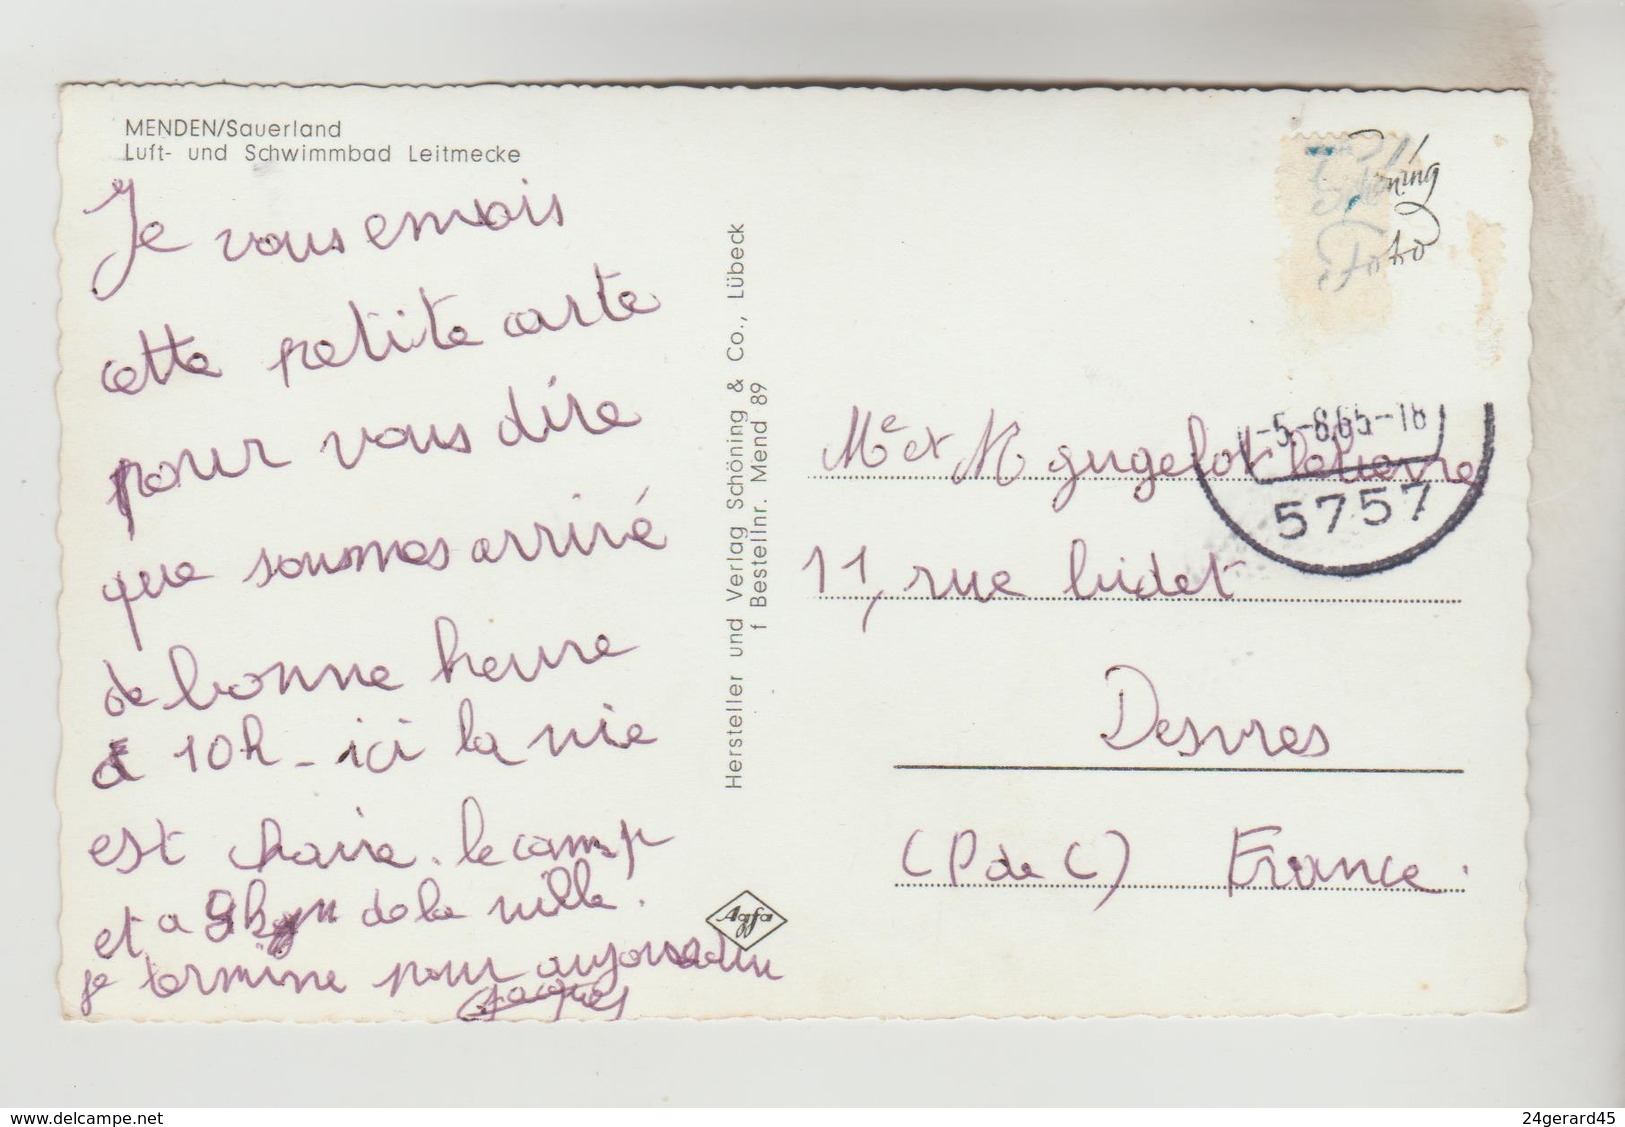 MENDEN/Sauerland
Luft- und Schwimmbad Leitmecke
Je vous emvois
cette petite carte
pour vous dire
que sousmes arrivé
de bonne heure
à 10h - ici la vie
est chaire. le camp
et a 9km de la ville.
je termine pour aujourdui
Jacques
Hersteller und Verlag Schöning & Co., Lübeck
f Bestellnr. Mend 89
Agfa
Schöning
Foto
-5.-8.65-18
5757
Me et M gugelot
11, rue
Desvres
(P de C) France.
www.delcampe.net
24gerard45